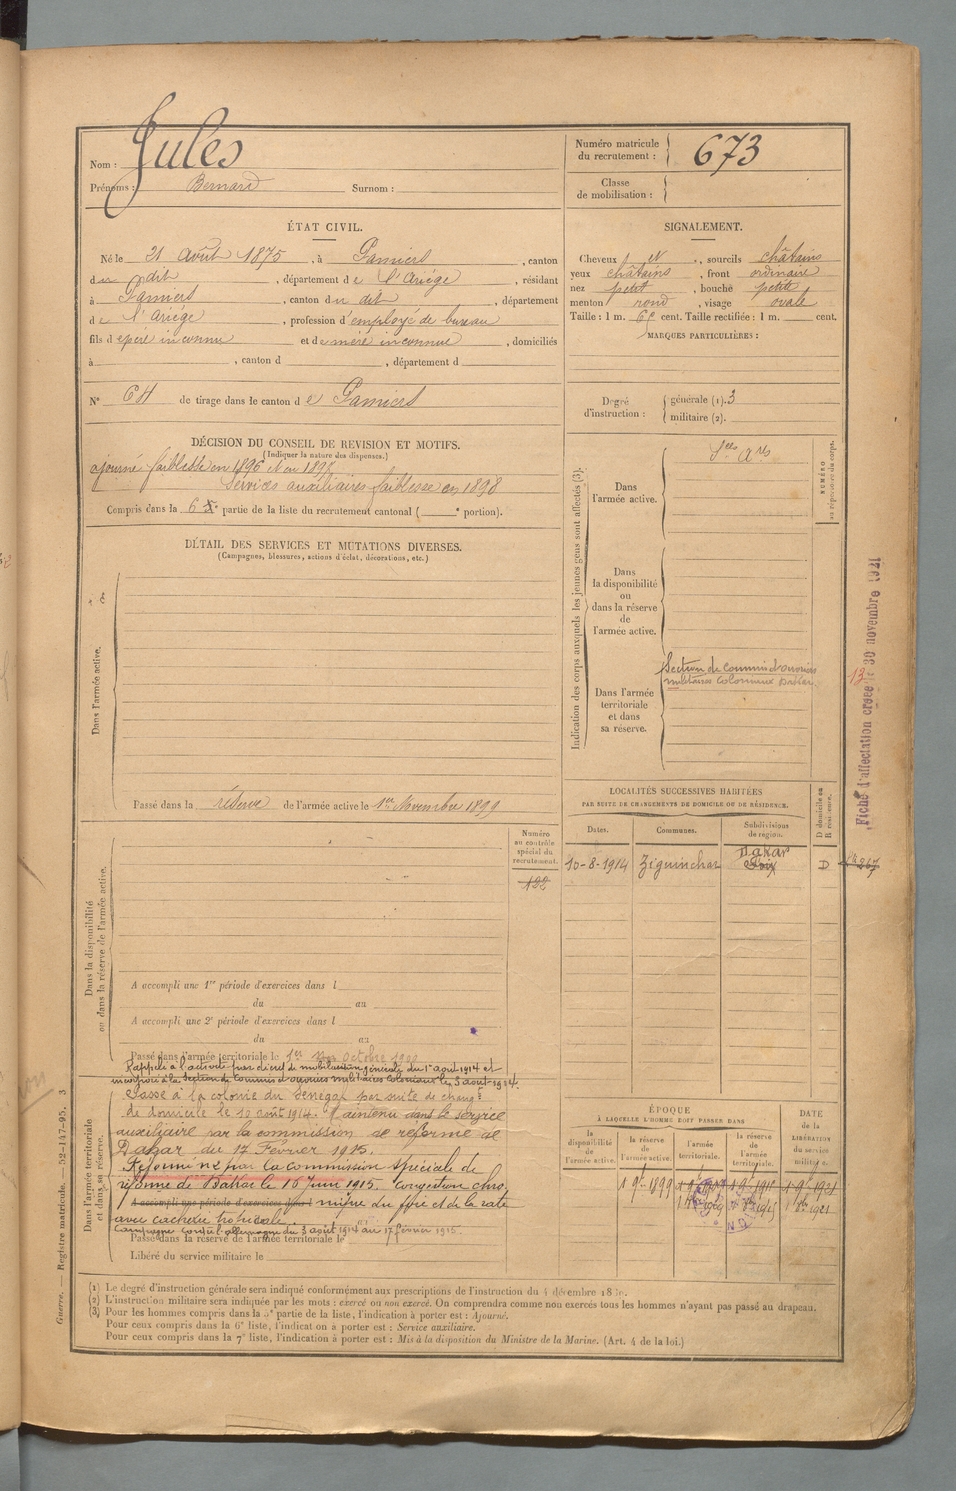 Nom : Jules
Prénoms : Bernard Surnom :
Numéro matricule du recrutement : 673
Classe de mobilisation :
ÉTAT CIVIL.
Né le 21 août 1875, à Pamiers, canton
du dit, département de l'Ariège, résidant
à Pamiers, canton du dit, département
de l'Ariège, profession d'employé de bureau
fils de père inconnu et de mère inconnue, domiciliés
à , canton d , département d
N° 64 de tirage dans le canton de Pamiers
SIGNALEMENT.
Cheveux et , sourcils châtains
yeux châtains, front ordinaire
nez petit, bouche petite
menton rond, visage ovale
Taille : 1 m. cent. Taille rectifiée : 1 m. cent.
MARQUES PARTICULIÈRES :
Degré d'instruction : générale (1). 3
militaire (2).
DÉCISION DU CONSEIL DE REVISION ET MOTIFS.
(Indiquer la nature des dispenses.)
ajourné faiblesse en 1896 et en 1897
Services auxiliaires faiblesse en 1898
Compris dans la 6e partie de la liste du recrutement cantonal ( e portion).
DÉTAIL DES SERVICES ET MUTATIONS DIVERSES.
(Campagnes, blessures, actions d'éclat, décorations, etc.)
Dans l'armée active.
Passé dans la réserve de l'armée active le 1er Novembre 1899
Indication des corps auxquels les jeunes gens sont affectés (3).
NUMÉRO au répertoire du corps.
Dans l'armée active.
Dans la disponibilité ou dans la réserve de l'armée active.
Dans l'armée territoriale et dans sa réserve.
Section de commis d'ouvriers
militaires coloniaux Dakar
Fiche d'affectation créée le 30 novembre 1921
13
LOCALITÉS SUCCESSIVES HABITÉES
PAR SUITE DE CHANGEMENTS DE DOMICILE OU DE RÉSIDENCE.
Dates. Communes. Subdivisions de région. D domicile ou R résidence.
10-8-1914 Ziguinchor Foix Dakar D
Dans la disponibilité ou dans la réserve de l'armée active.
Numéro au contrôle spécial du recrutement.
A accompli une 1re période d'exercices dans l
du au
A accompli une 2e période d'exercices dans l
du au
Passé dans l'armée territoriale le 1er Octobre
Dans l'armée territoriale et dans sa réserve.
Rappelé à l'activité par décret de mobilisation générale du 1er août 1914 et
incorporé à la Section de Commis d'ouvriers militaires coloniaux le 3 août 1914.
Passé à la colonie du Sénégal par suite de changt
de domicile le 10 août 1914. Maintenu dans le service
auxiliaire par la commission de réforme de
Dakar du 17 Février 1915.
Réformé n°2 par la commission spéciale de
réforme de Dakar le 18 Juin 1915. Congestion chro-
A accompli une période d'exercices dans l
nique du foie et de la rate
avec cachexie tropicale.
Campagne contre l'allemagne du 3 août 1914 au 17 février 1915.
Passé dans la réserve de l'armée territoriale le
Libéré du service militaire le
ÉPOQUE
À LAQUELLE L'HOMME DOIT PASSER DANS
la disponibilité de l'armée active.
la réserve de l'armée active.
l'armée territoriale.
la réserve de l'armée territoriale.
DATE de la LIBÉRATION du service militaire.
(1) Le degré d'instruction générale sera indiqué conformément aux prescriptions de l'instruction du 4 décembre
(2) L'instruction militaire sera indiquée par les mots : exercé ou non exercé. On comprendra comme non exercés tous les hommes n'ayant pas passé au drapeau.
(3) Pour les hommes compris dans la 5e partie de la liste, l'indication à porter est : Ajourné.
Pour ceux compris dans la 6e liste, l'indication à porter est : Service auxiliaire.
Pour ceux compris dans la 7e liste, l'indication à porter est : Mis à la disposition du Ministre de la Marine. (Art. 4 de la loi.)
Guerre. — Registre matricule. — 52-147-95. 3